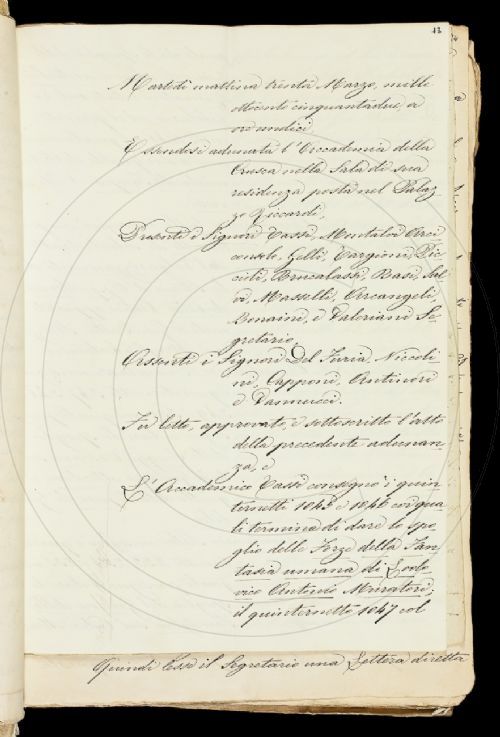 13
Martedì mattina trenta Marzo, mille
ottocento cinquantadue, a
ore undici
Essendosi adunata l'Accademia della
Crusca nella Sala di sua
residenza posta nel Palaz-
zo Riccardi,
Presenti i Signori Tassi, Montalvi Arci
consolo, Gelli, Targioni, Pic-
cioli, Brucalassi, Basi, Sal
vi, Masselli, Arcangeli,
Bonaini, e Valeriani Se-
gretario,
Assenti i Signori Del Furia, Niccoli
ni, Capponi, Antinori
e Vannucci.
Fu letto, approvato, e sottoscritto l'atto
della precedente adunan-
za, e
L'Accademico Tassi consegnò i quin
ternetti 1845 e 1846 coi qua
li termina di dare lo spo
glio delle Forze della Fan-
tasia umana di Lodo
vico Antonio Muratori;
il quinternetto 1847 col
Quindi lesse il Segretario una Lettera diretta